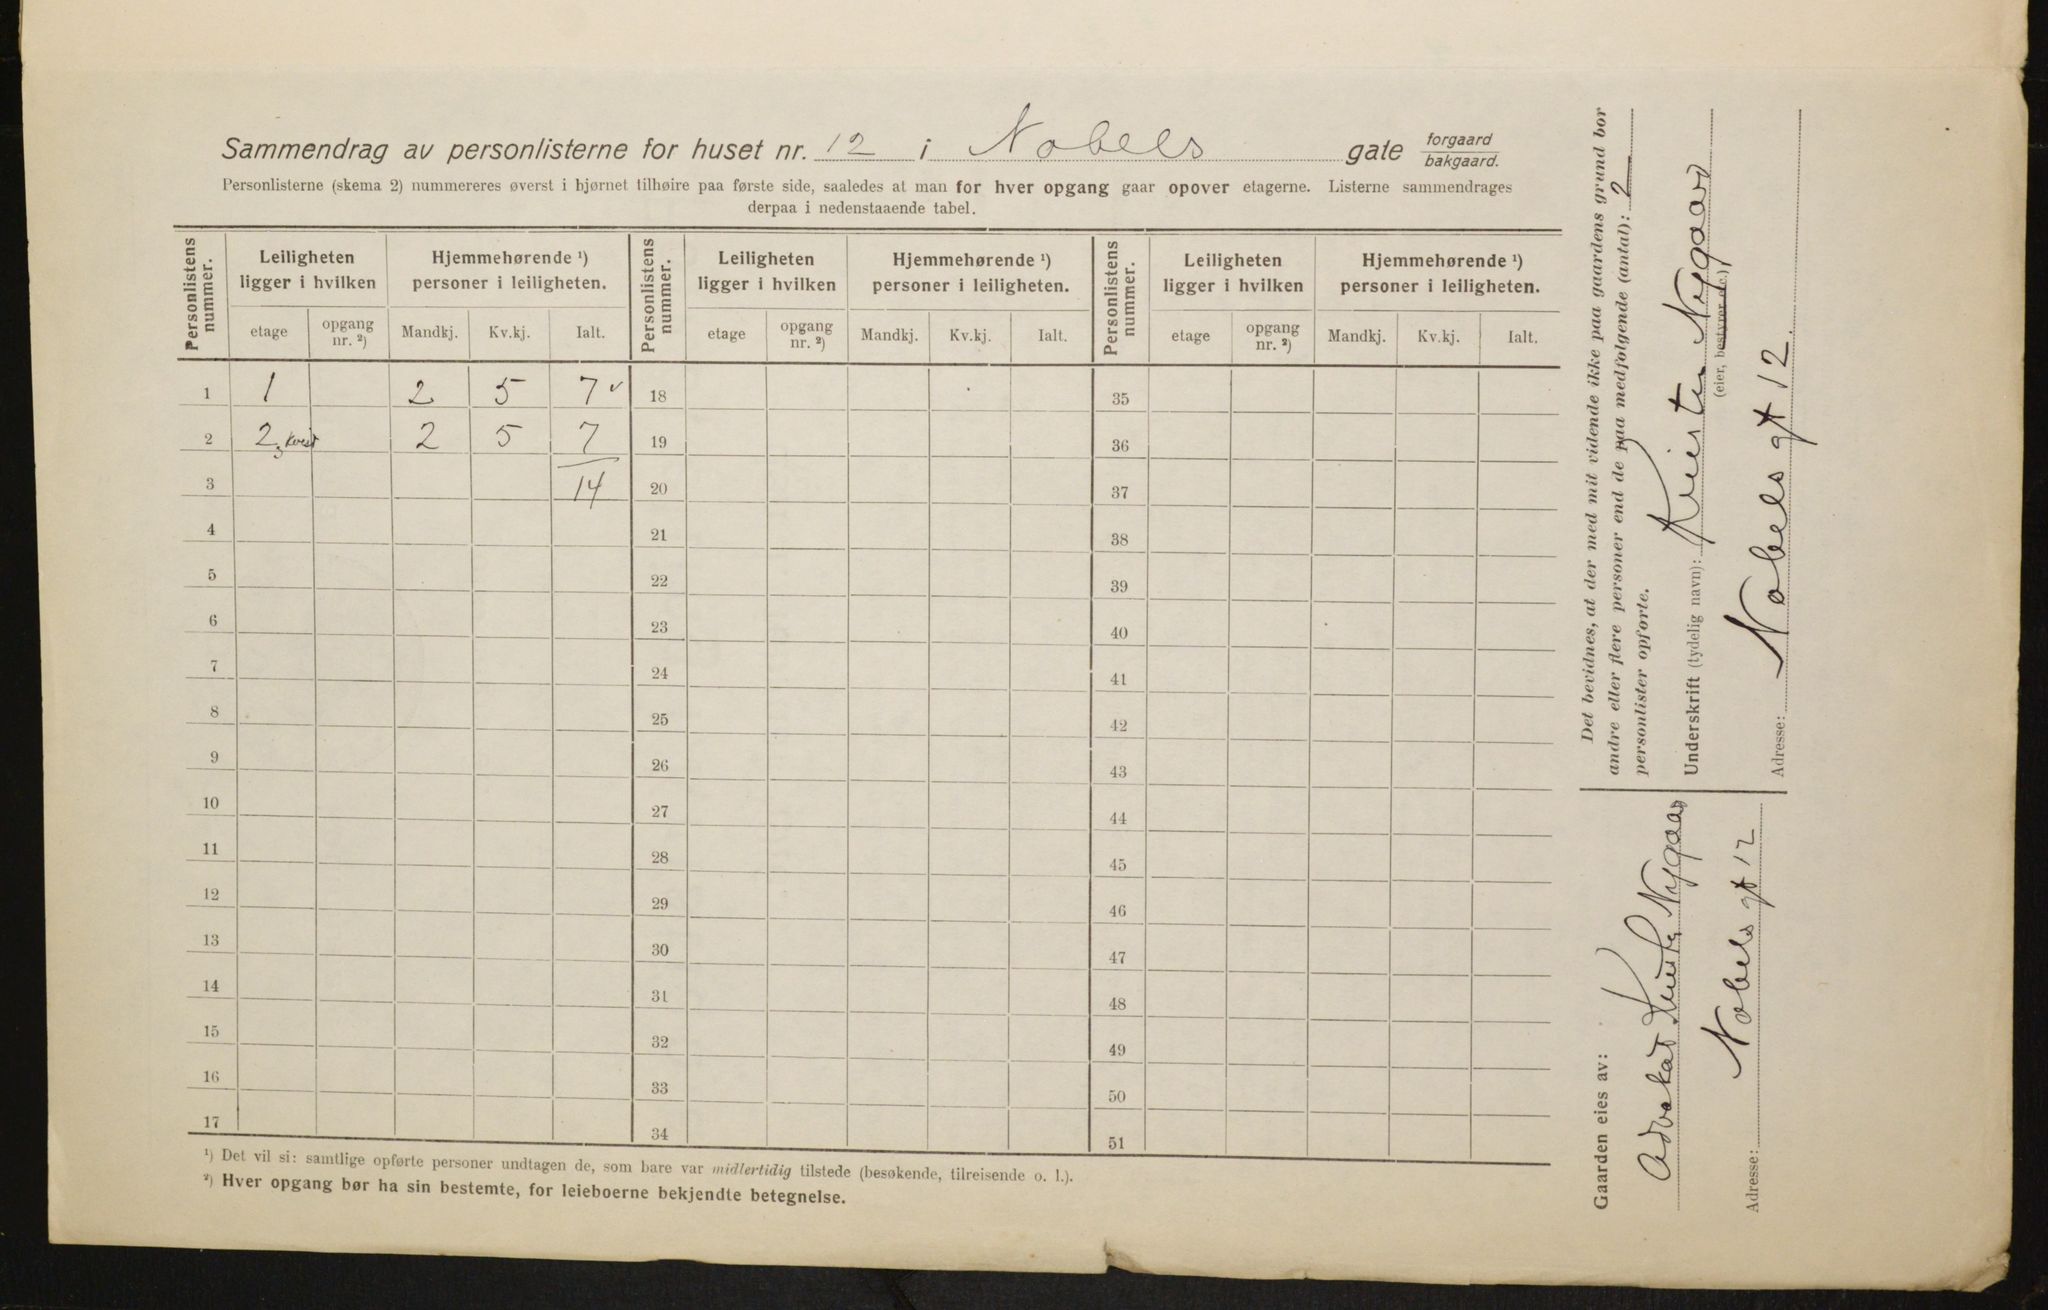 Sammendrag av personlisterne for huset nr. 12 i Nobels gate forgaard
bakgaard.
Personlisterne (skema 2) nummereres øverst i hjørnet tilhøire paa første side, saaledes at man for hver opgang gaar opover etagerne. Listerne sammendrages
derpaa i nedenstaaende tabel.
Personlistens nummer. Leiligheten ligger i hvilken Hjemmehørende ¹) personer i leiligheten. Personlistens nummer. Leiligheten ligger i hvilken Hjemmehørende ¹) personer i leiligheten. Personlistens nummer. Leiligheten ligger i hvilken Hjemmehørende ¹) personer i leiligheten.
etage opgang nr. ²) Mandkj. Kv.kj. Ialt. etage opgang nr. ²) Mandkj. Kv.kj. Ialt. etage opgang nr. ²) Mandkj. Kv.kj. Ialt.
1 1 2 5 7 v 18 35
2 2 2 5 7 19 36
3 14 20 37
4 21 38
5 22 39
6 23 40
7 24 41
8 25 42
9 26 43
10 27 44
11 28 45
12 29 46
13 30 47
14 31 48
15 32 49
16 33 50
17 34 51
¹) Det vil si: samtlige opførte personer undtagen de, som bare var midlertidig tilstede (besøkende, tilreisende o. l.).
²) Hver opgang bør ha sin bestemte, for leieboerne bekjendte betegnelse.
Gaarden eies av:
Advokat Nygaard
Adresse: Nobels gt 12
Det bevidnes, at der med mit vidende ikke paa gaardens grund bor
andre eller flere personer end de paa medfølgende (antal): 2
personlister opførte.
Underskrift (tydelig navn): Nygaard
(eier, bestyrer etc.)
Adresse: Nobels gt 12.